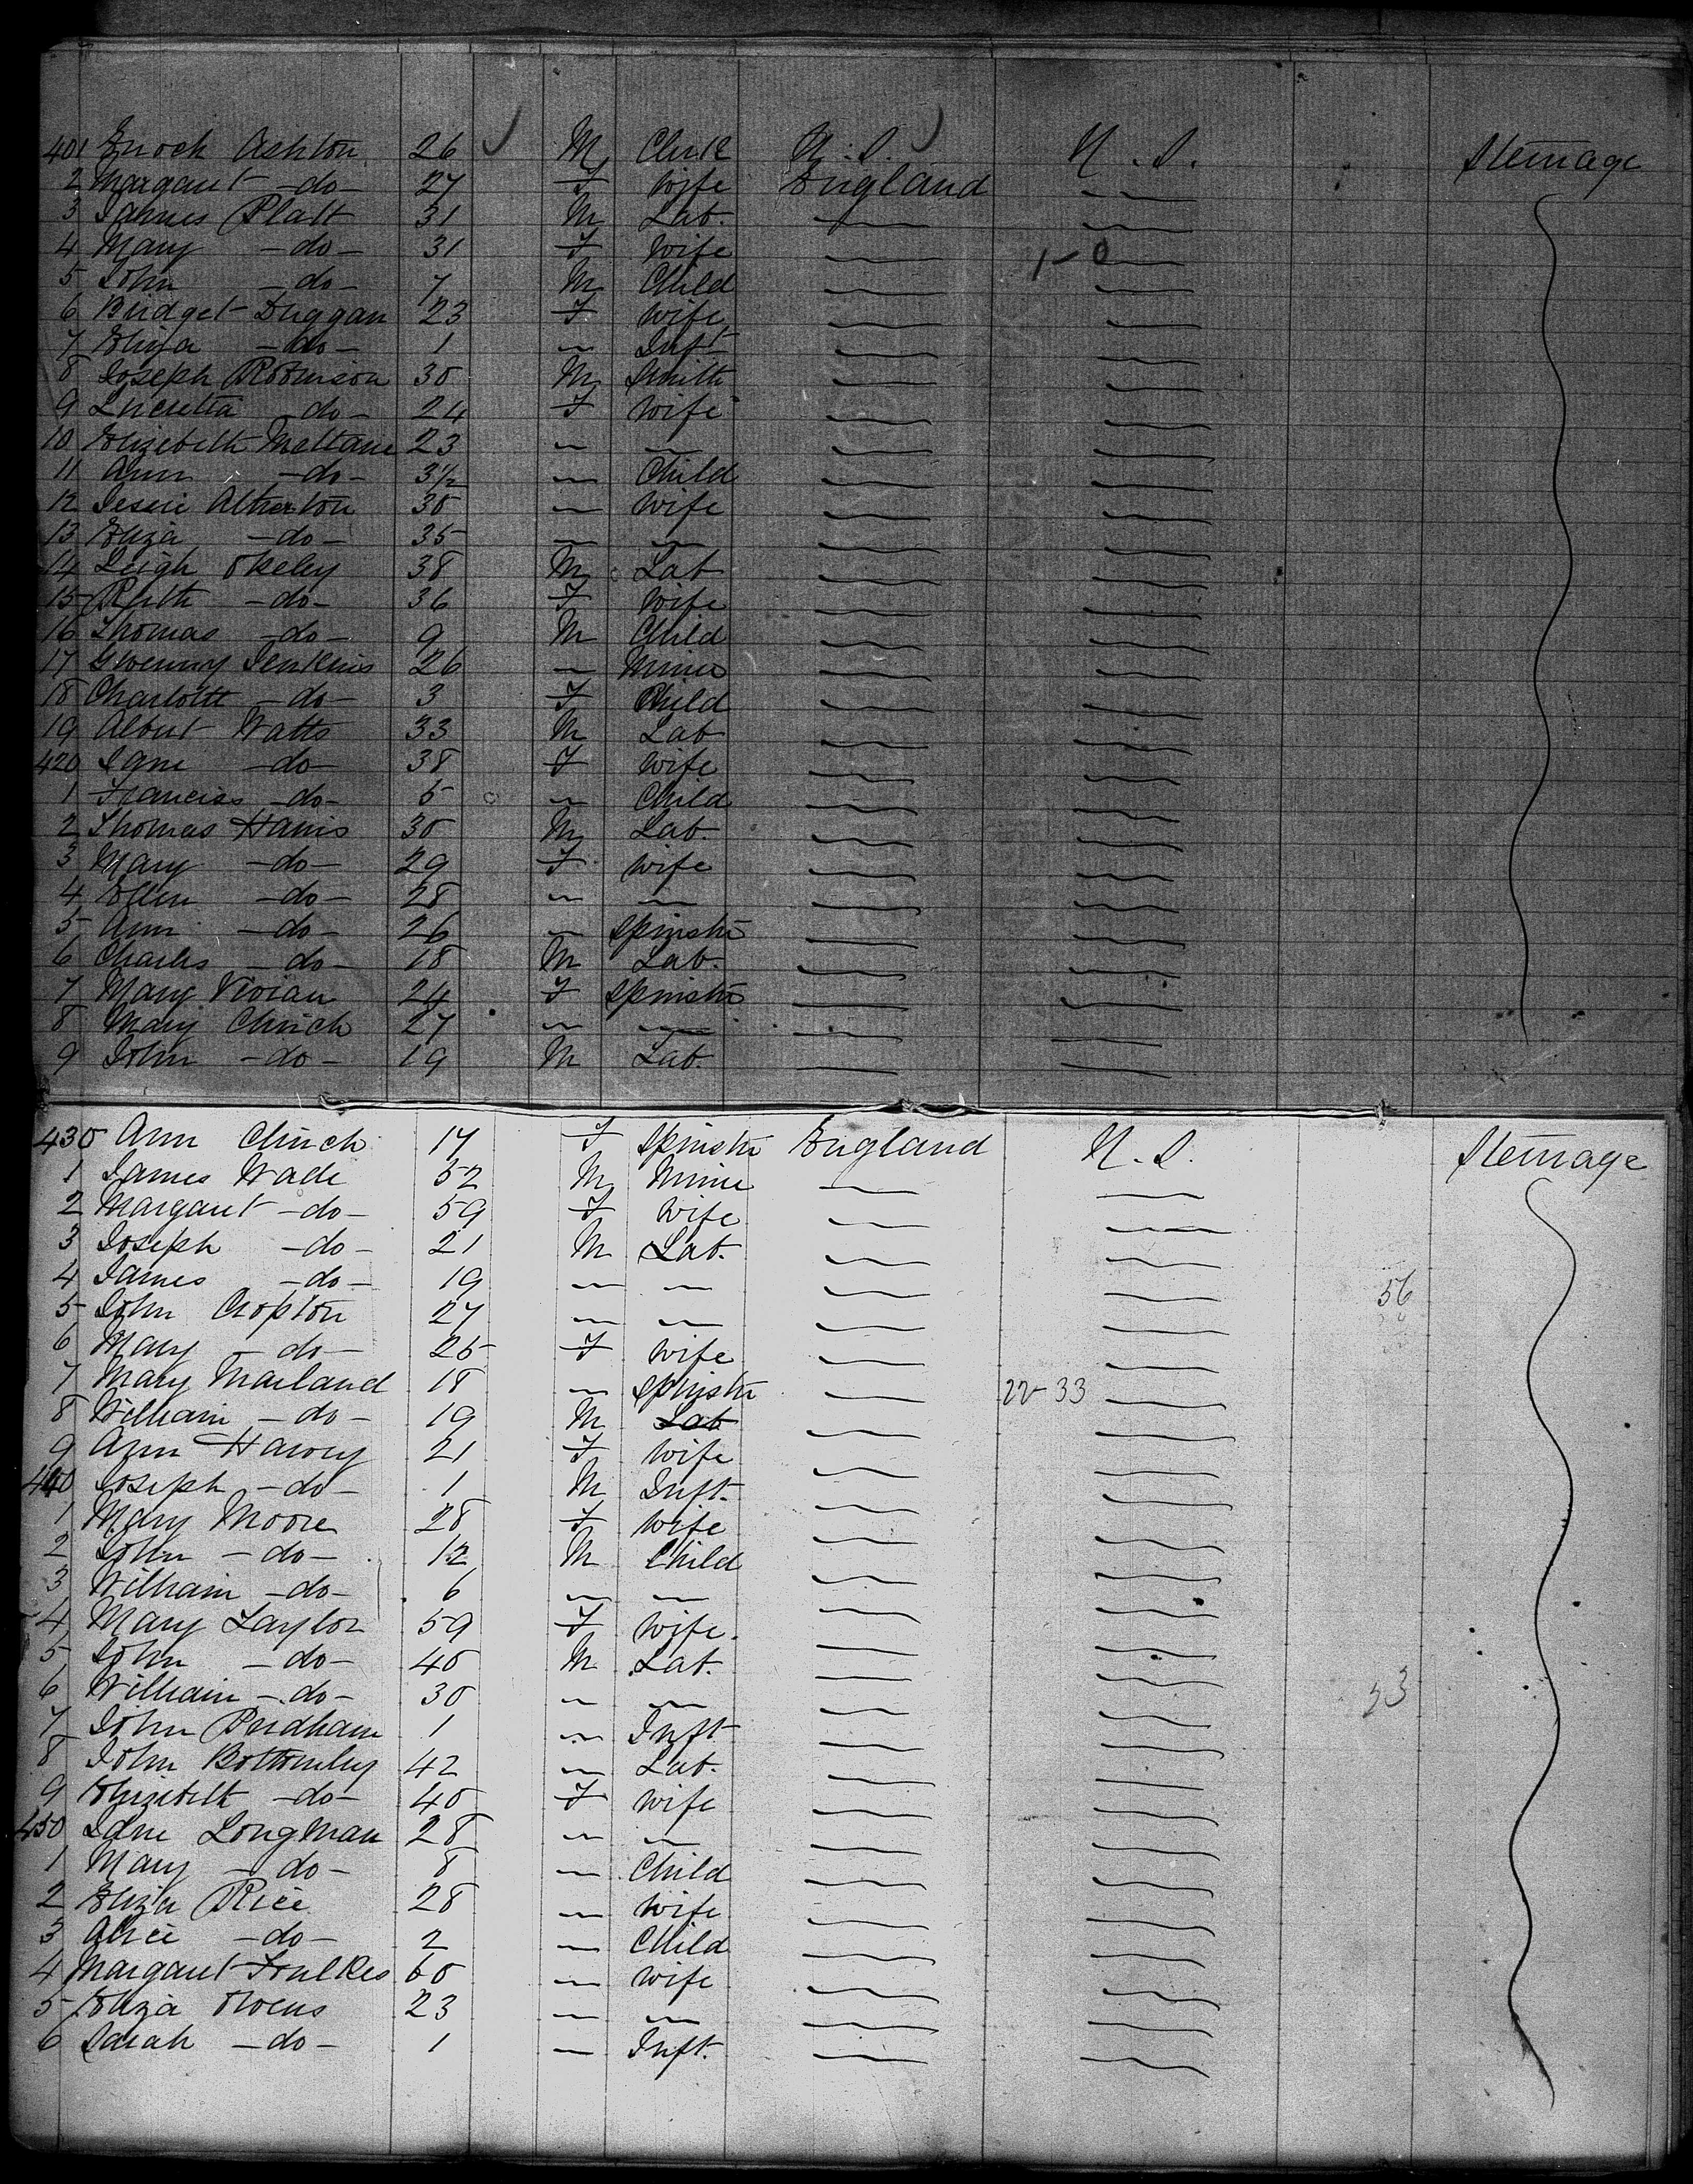 401 Enoch Ashton 26 M Clerk U.S. U.S. Steerage
2 Margaret -do- 27 F Wife England —
3 James Platt 31 M Lab. — —
4 Mary -do- 31 F Wife — 1-0 —
5 John -do- 7 M Child — —
6 Bridget Duggan 23 F Wife — —
7 Eliza -do- 1 — Inft — —
8 Joseph Robinson 30 M Smith — —
9 Lucretta -do- 24 F Wife — —
10 Elizebeth 23 — — — —
11 Ann -do- 3½ — Child — —
12 Jessie Atherton 30 — Wife — —
13 Eliza -do- 35 — — — —
14 Leigh Okeley 38 M Lab — —
15 Ruth -do- 36 F Wife — —
16 Thomas -do- 9 M Child — —
17 Gwenny Jenkins 26 — Miner — —
18 Charlotte -do- 3 F Child — —
19 Albert Watts 33 M Lab — —
420 Jane -do- 38 F Wife — —
1 Franciss -do- 5 — Child — —
2 Thomas Harris 30 M Lab. — —
3 Mary -do- 29 F Wife — —
4 Ellen -do- 28 — — — —
5 Ann -do- 26 — Spinster — —
6 Charles -do- 18 M Lab. — —
7 Mary Vivian 24 F Spinster — —
8 Mary Clinch 27 — — — —
9 John -do- 19 M Lab. — —
430 Ann Clinch 17 F Spinster England U.S. Steerage
1 James Wade 52 M Miner — —
2 Margaret -do- 59 F Wife — —
3 Joseph -do- 21 M Lab. — —
4 James -do- 19 — — — — 56
5 John Cropton 27 — — — —
6 Mary -do- 25 F Wife — —
7 Mary Marland 18 — Spinster — 22-33 —
8 William -do- 19 M Lab — —
9 Ann Harvey 21 F Wife — —
440 Joseph -do- 1 M Inft. — —
1 Mary Moore 28 F Wife — —
2 John -do- 12 M Child — —
3 William -do- 6 — — — —
4 Mary Taylor 59 F Wife. — —
5 John -do- 40 M Lab. — —
6 William -do- 30 — — — — 33
7 John Pendham 1 — Inft — —
8 John Bottomley 42 — Lab. — —
9 Elizebeth -do- 40 F Wife — —
450 Jane Longman 28 — — — —
1 Mary -do- 8 — Child — —
2 Eliza Rice 28 — Wife — —
3 Alice -do- 2 — Child — —
4 Margaret Foulkes 60 — Wife — —
5 Eliza Owens 23 — — — —
6 Sarah -do- 1 — Inft. — —